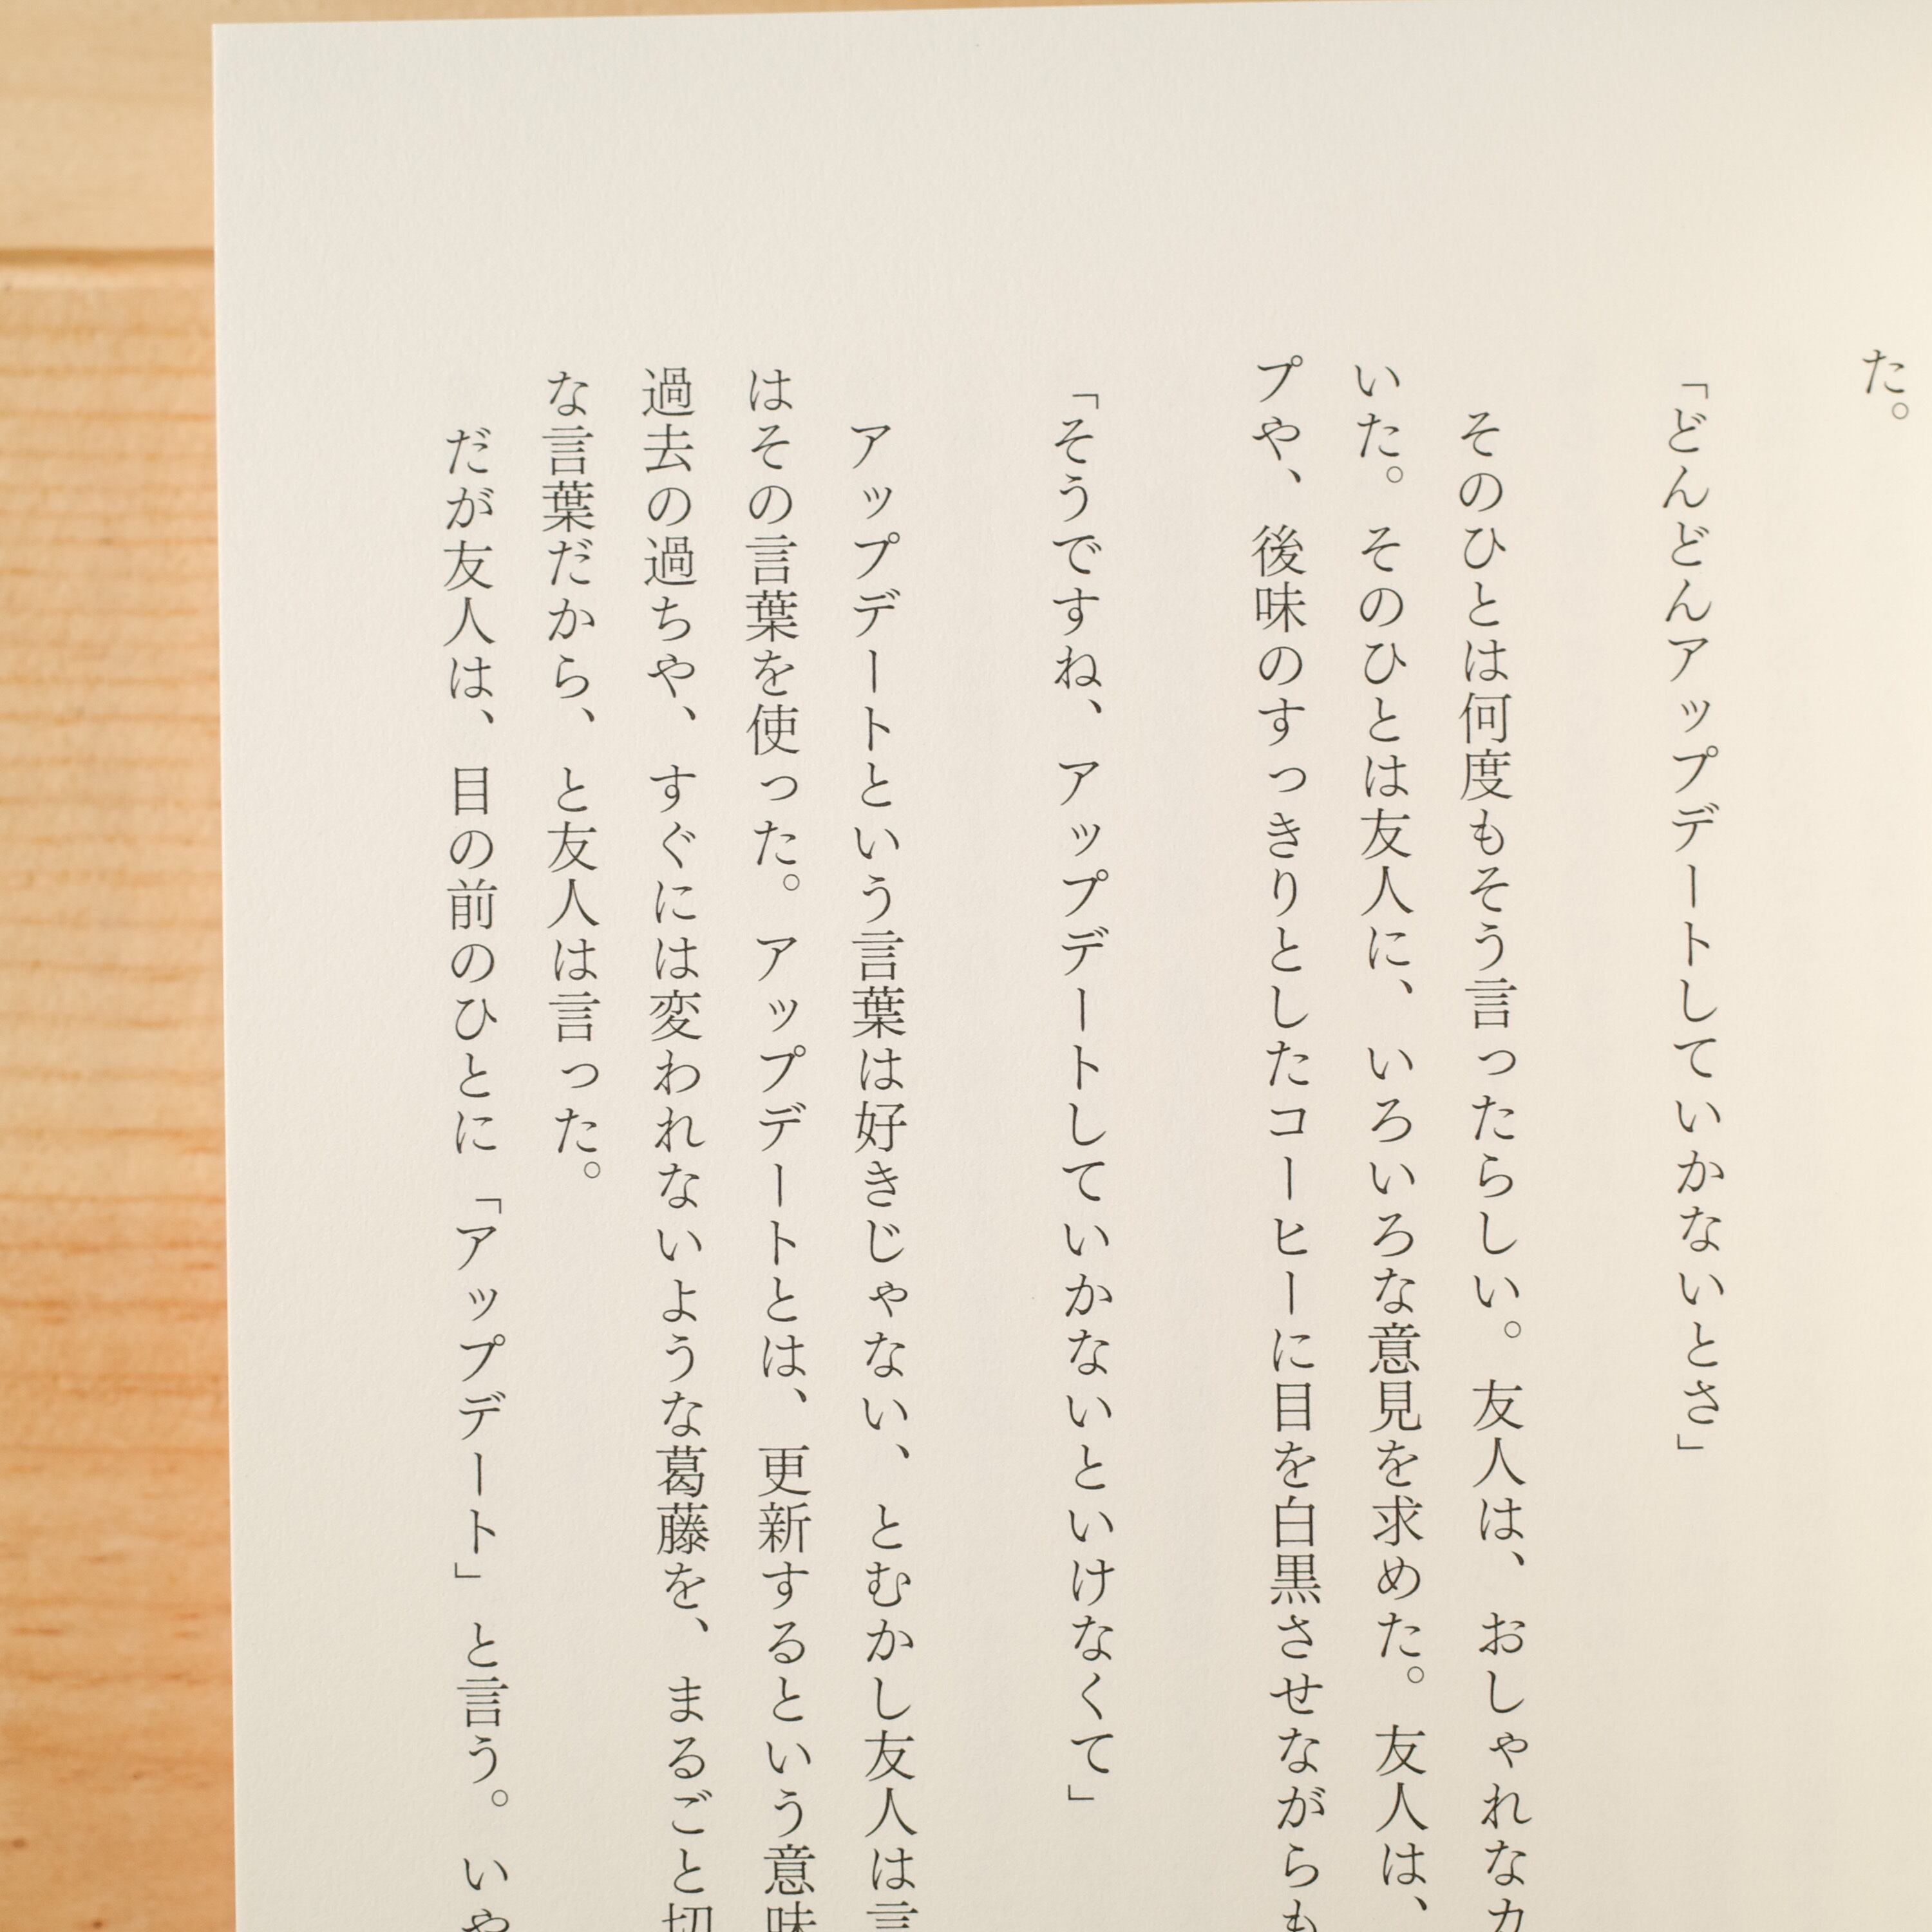 た。
「どんどんアップデートしていかないとさ」
そのひとは何度もそう言ったらしい。友人は、おしゃれなカ
いた。そのひとは友人に、いろいろな意見を求めた。友人は、
プや、後味のすっきりとしたコーヒーに目を白黒させながらも
「そうですね、アップデートしていかないといけなくて」
アップデートという言葉は好きじゃない、とむかし友人は言
はその言葉を使った。アップデートとは、更新するという意味
過去の過ちや、すぐには変われないような葛藤を、まるごと切
な言葉だから、と友人は言った。
だが友人は、目の前のひとに「アップデート」と言う。いや